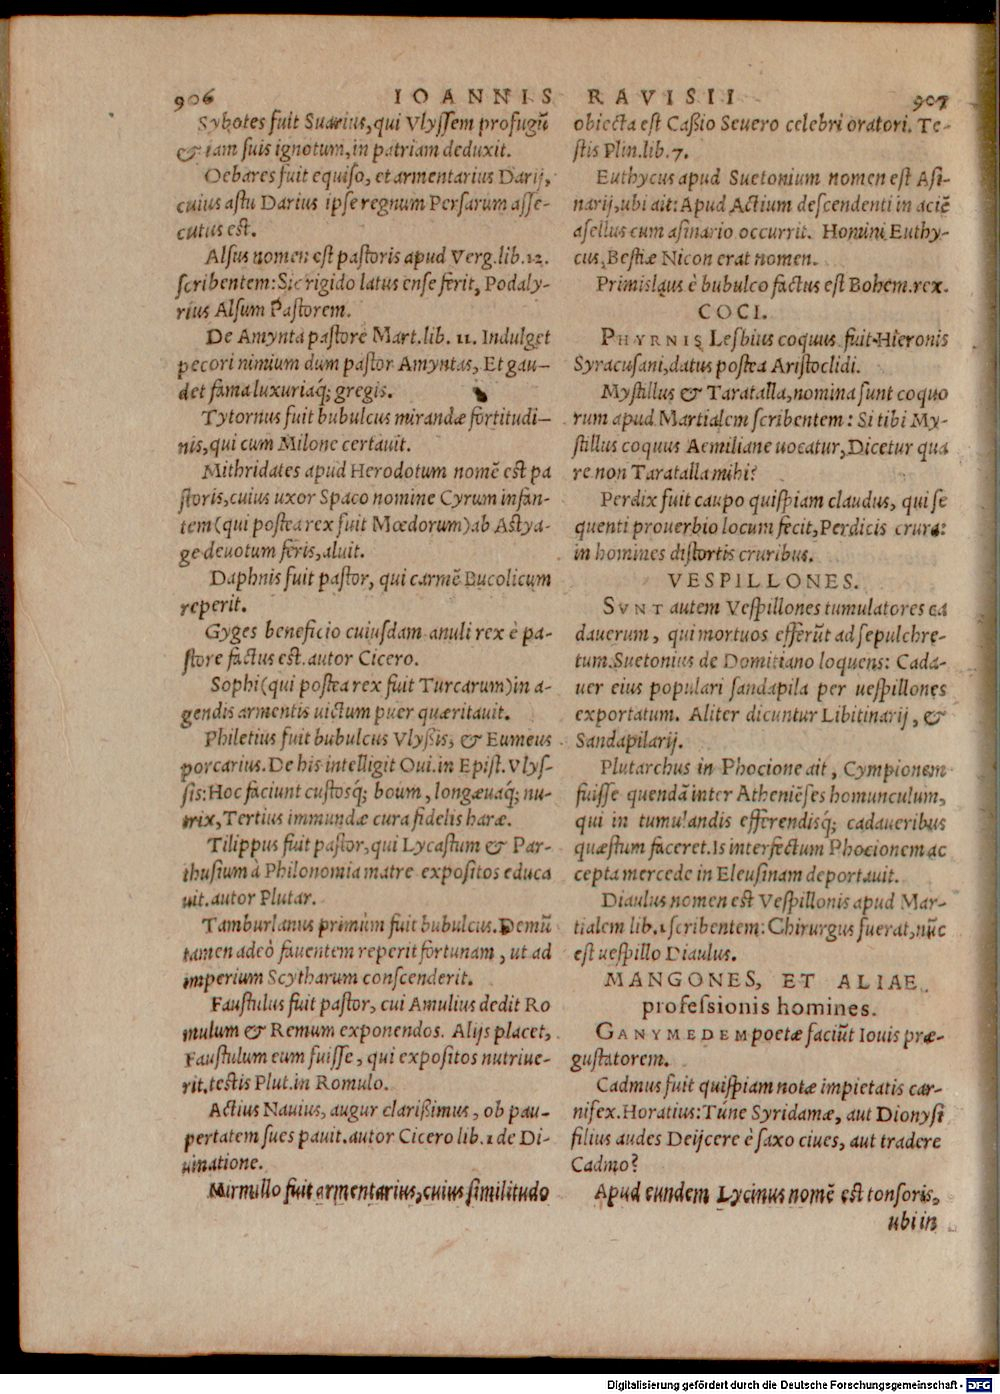 906 IOANNIS RAVISII 907
Sybotes fuit Suarius, qui Vlyssem profugū
& iam suis ignotum, in patriam deduxit.
Oebares fuit equiso, et armentarius Darij,
cuius astu Darius ipse regnum Persarum asse-
cutus est.
Alsus nomen est pastoris apud Verg. lib. 12.
scribentem: Sic rigido latus ense ferit, Podaly-
rius Alsum Pastorem.
De Amynta pastore Mart. lib. 11. Indulget
pecori nimium dum pastor Amyntas, Et gau-
det fama luxuriaq́; gregis.
Tytornus fuit bubulcus mirandæ fortitudi-
nis, qui cum Milone certauit.
Mithridates apud Herodotum nomē est pa
storis, cuius uxor Spaco nomine Cyrum infan-
tem (qui postea rex fuit Mœdorum) ab Astya-
ge deuotum feris, aluit.
Daphnis fuit pastor, qui carmē Bucolicum
reperit.
Gyges beneficio cuiusdam anuli rex è pa-
store factus est. autor Cicero.
Sophi (qui postea rex fuit Turcarum) in a-
gendis armentis uictum puer quæritauit.
Philetius fuit bubulcus Vlyßis, & Eumeus
porcarius. De his intelligit Oui. in Epist. Vlys-
sis: Hoc faciunt custosq́; boum, longæuaq́; nu-
trix, Tertius immundæ cura fidelis haræ.
Tilippus fuit pastor, qui Lycastum & Par-
thusium à Philonomia matre expositos educa
uit. autor Plutar.
Tamburlanus primùm fuit bubulcus. Demū
tamen adeò fauentem reperit fortunam, ut ad
imperium Scytharum conscenderit.
Faustulus fuit pastor, cui Amulius dedit Ro
mulum & Remum exponendos. Alijs placet,
Faustulum eum fuisse, qui expositos nutriue-
rit. testis Plut. in Romulo.
Actius Nauius, augur clarißimus, ob pau-
pertatem sues pauit. autor Cicero lib. 1 de Di-
uinatione.
Mirmillo fuit armentarius, cuius similitudo
obiecta est Caßio Seuero celebri oratori. Te-
stis Plin. lib. 7.
Euthycus apud Suetonium nomen est Asi-
narij, ubi ait: Apud Actium descendenti in aciē
asellus cum asinario occurrit. Homini Euthy-
cus, Bestiæ Nicon erat nomen.
Primislaus è bubulco factus est Bohem. rex.
COCI.
PHYRNIS Lesbius coquus fuit Hieronis
Syracusani, datus postea Aristoclidi.
Mystillus & Taratalla, nomina sunt coquo
rum apud Martialem scribentem: Si tibi My-
stillus coquus Aemiliane uocatur, Dicetur qua
re non Taratalla mihi?
Perdix fuit caupo quispiam claudus, qui se
quenti prouerbio locum fecit, Perdicis crura:
in homines distortis cruribus.
VESPILLONES.
SVNT autem Vespillones tumulatores ca
dauerum, qui mortuos efferūt ad sepulchre-
tum. Suetonius de Domitiano loquens: Cada-
uer eius populari sandapila per uespillones
exportatum. Aliter dicuntur Libitinarij, &
Sandapilarij.
Plutarchus in Phocione ait, Cympionem
fuisse quendā inter Atheniēses homunculum,
qui in tumulandis efferendisq́; cadaueribus
quæstum faceret. Is interfectum Phocionem ac
cepta mercede in Eleusinam deportauit.
Diaulus nomen est Vespillonis apud Mar-
tialem lib. 1 scribentem: Chirurgus fuerat, nūc
est uespillo Diaulus.
MANGONES, ET ALIAE
professionis homines.
GANYMEDEM poetæ faciūt Iouis præ-
gustatorem.
Cadmus fuit quispiam notæ impietatis car-
nifex. Horatius: Túne Syridamæ, aut Dionysi
filius audes Deijcere è saxo ciues, aut tradere
Cadmo?
Apud eundem Lycinus nomē est tonsoris,
ubi in
Digitalisierung gefördert durch die Deutsche Forschungsgemeinschaft - DFG